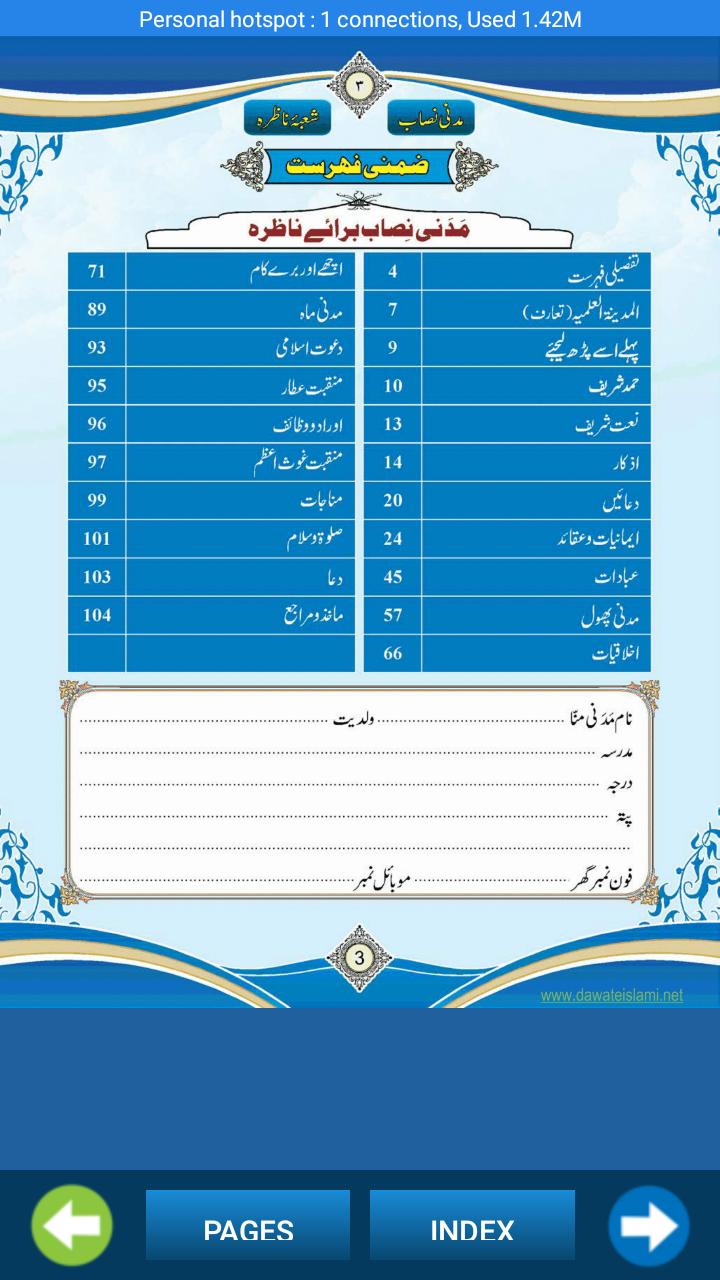 Personal hotspot : 1 connections, Used 1.42M
۳
مدنی نصاب
شعبۂ ناظرہ
ضمنی فہرست
مَدَنی نِصاب برائے ناظرہ
تفصیلی فہرست 4
المدینۃ العلمیہ (تعارف) 7
پہلے اسے پڑھ لیجئے 9
حمد شریف 10
نعت شریف 13
اذکار 14
دعائیں 20
ایمانیات و عقائد 24
عبادات 45
مدنی پھول 57
اخلاقیات 66
اچھے اور برے کام 71
مدنی ماہ 89
دعوت اسلامی 93
منقبت عطار 95
اوراد و وظائف 96
منقبت غوث اعظم 97
مناجات 99
صلوۃ و سلام 101
دعا 103
ماخذ و مراجع 104
نام مَدَنی منّا ولدیت
مدرسہ
درجہ
پتہ
فون نمبر گھر موبائل نمبر
3
www.dawateislami.net
PAGES INDEX